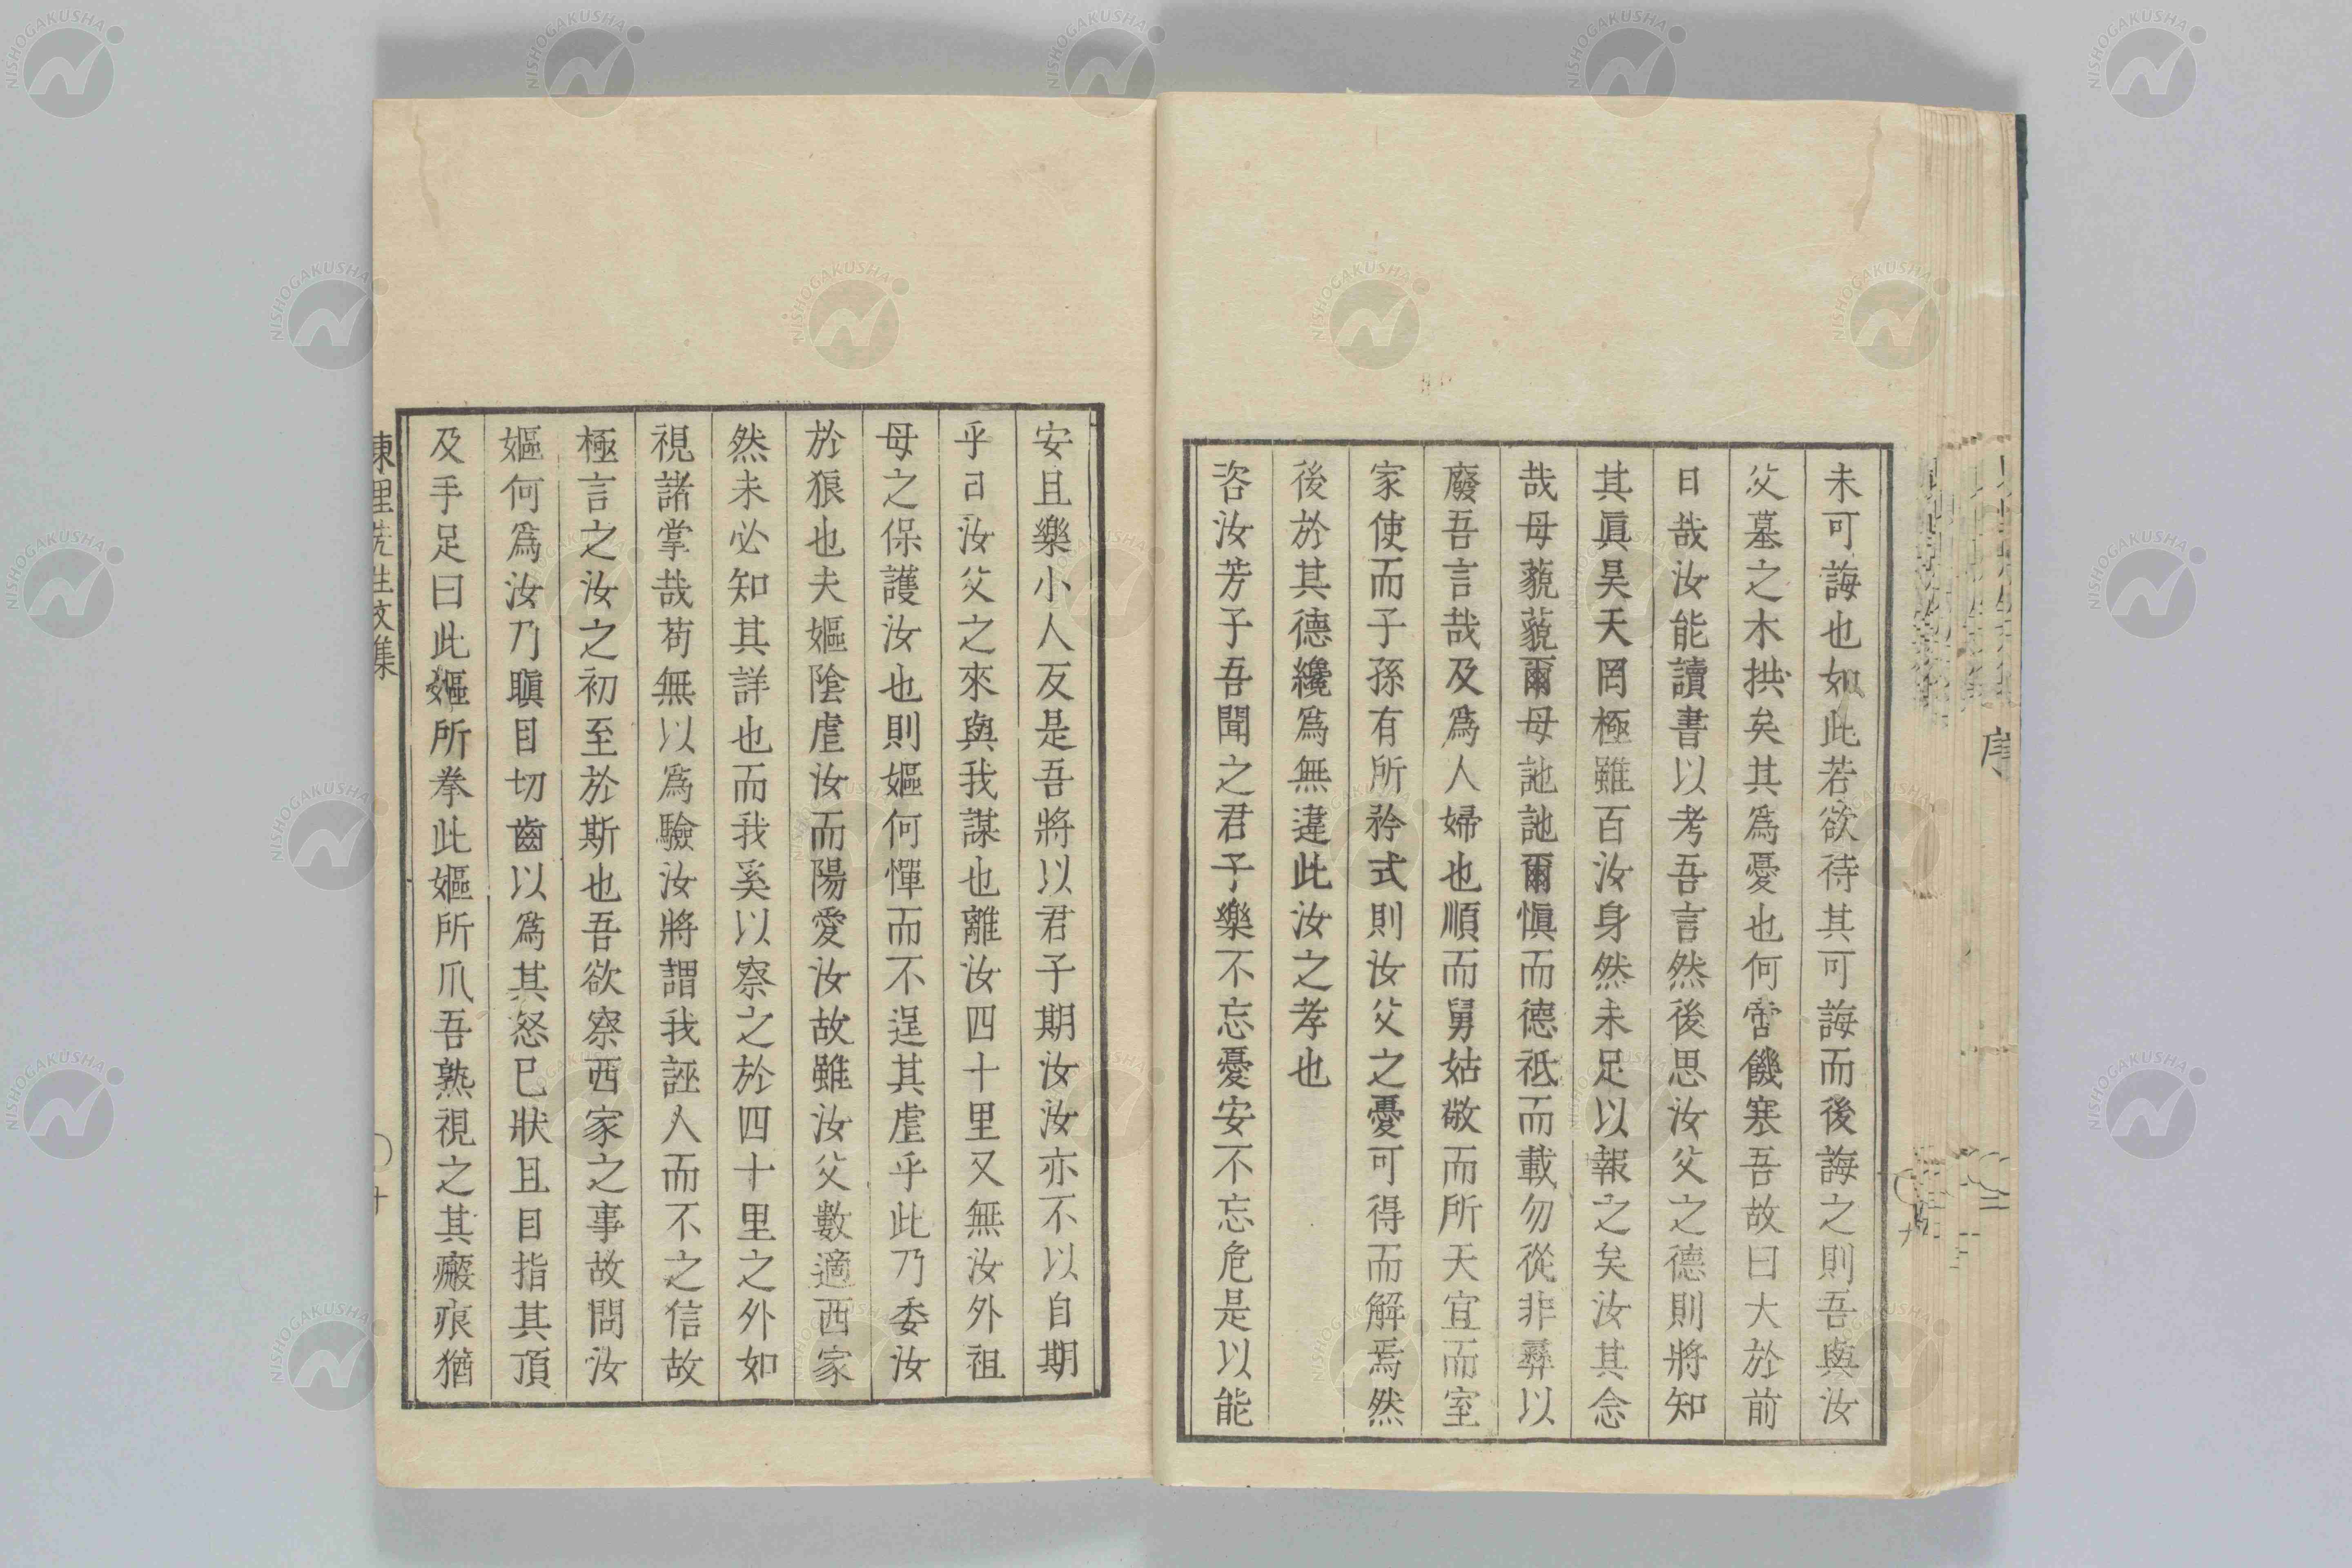 未可誨也如此若欲待其可誨而後誨之則吾與汝
父墓之木拱矣其爲憂也何啻饑寒吾故曰大於前
日哉汝能讀書以考吾言然後思汝父之德則將知
其眞昊天罔極雖百汝身然未足以報之矣汝其念
哉毋藐藐爾毋訑訑爾愼而德祗而載勿從非彝以
廢吾言哉及爲人婦也順而舅姑敬而所天宜而室
家使而子孫有所矜式則汝父之憂可得而解焉然
後於其德纔爲無違此汝之孝也
咨汝芳子吾聞之君子樂不忘憂安不忘危是以能
安且樂小人反是吾將以君子期汝汝亦不以自期
乎曰汝父之來與我謀也離汝四十里又無汝外祖
母之保護汝也則嫗何憚而不逞其虐乎此乃委汝
於狼也夫嫗陰虐汝而陽愛汝故雖汝父數適西家
然未必知其詳也而我奚以察之於四十里之外如
視諸掌哉苟無以爲驗汝將謂我誣人而不之信故
極言之汝之初至於斯也吾欲察西家之事故問汝
嫗何爲汝乃瞋目切齒以爲其怒已狀且自指其頂
及手足曰此嫗所拳此嫗所爪吾熟視之其瘢痕猶
東里先生文集
十
序
九
NISHOGAKUSHA